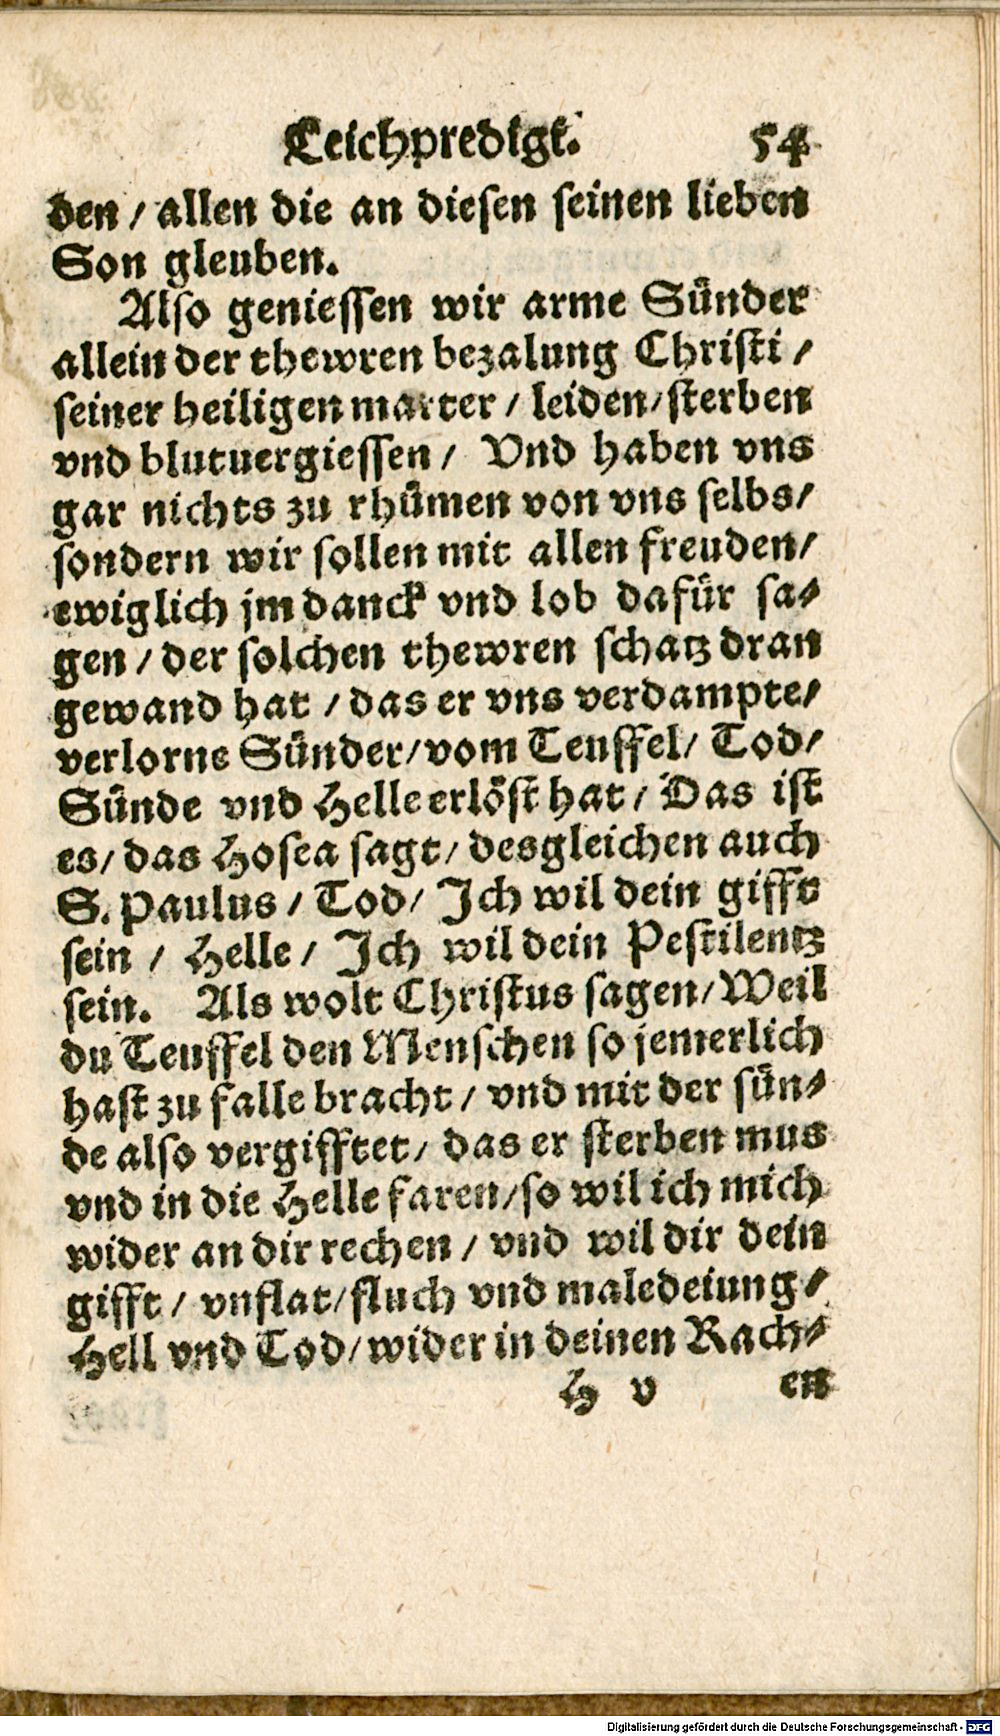 Leichpredigt. 54
den / allen die an diesen seinen lieben
Son gleuben.
Also geniessen wir arme Sünder
allein der thewren bezalung Christi /
seiner heiligen marter / leiden / sterben
vnd blutuergiessen / Vnd haben vns
gar nichts zu rhümen von vns selbs /
sondern wir sollen mit allen freuden /
ewiglich jm danck vnd lob dafür sa⸗
gen / der solchen thewren schatz dran
gewand hat / das er vns verdampte /
verlorne Sünder / vom Teuffel / Tod /
Sünde vnd Helle erlöst hat / Das ist
es / das Hosea sagt / desgleichen auch
S. Paulus / Tod / Ich wil dein gifft
sein / Helle / Ich wil dein Pestilentz
sein. Als wolt Christus sagen / Weil
du Teuffel den Menschen so jemerlich
hast zu falle bracht / vnd mit der sün⸗
de also vergifftet / das er sterben mus
vnd in die Helle faren / so wil ich mich
wider an dir rechen / vnd wil dir dein
gifft / vnflat / fluch vnd maledeiung /
Hell vnd Tod / wider in deinen Rach⸗
H v en
Digitalisierung gefördert durch die Deutsche Forschungsgemeinschaft - DFG